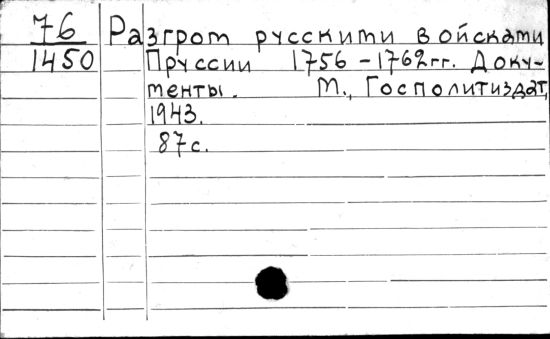 76
1450
Разгром русскими войсками
Пруссии 1756-1762гг. Доку-
менты. М., Госполитиздат,
1943.
87с.